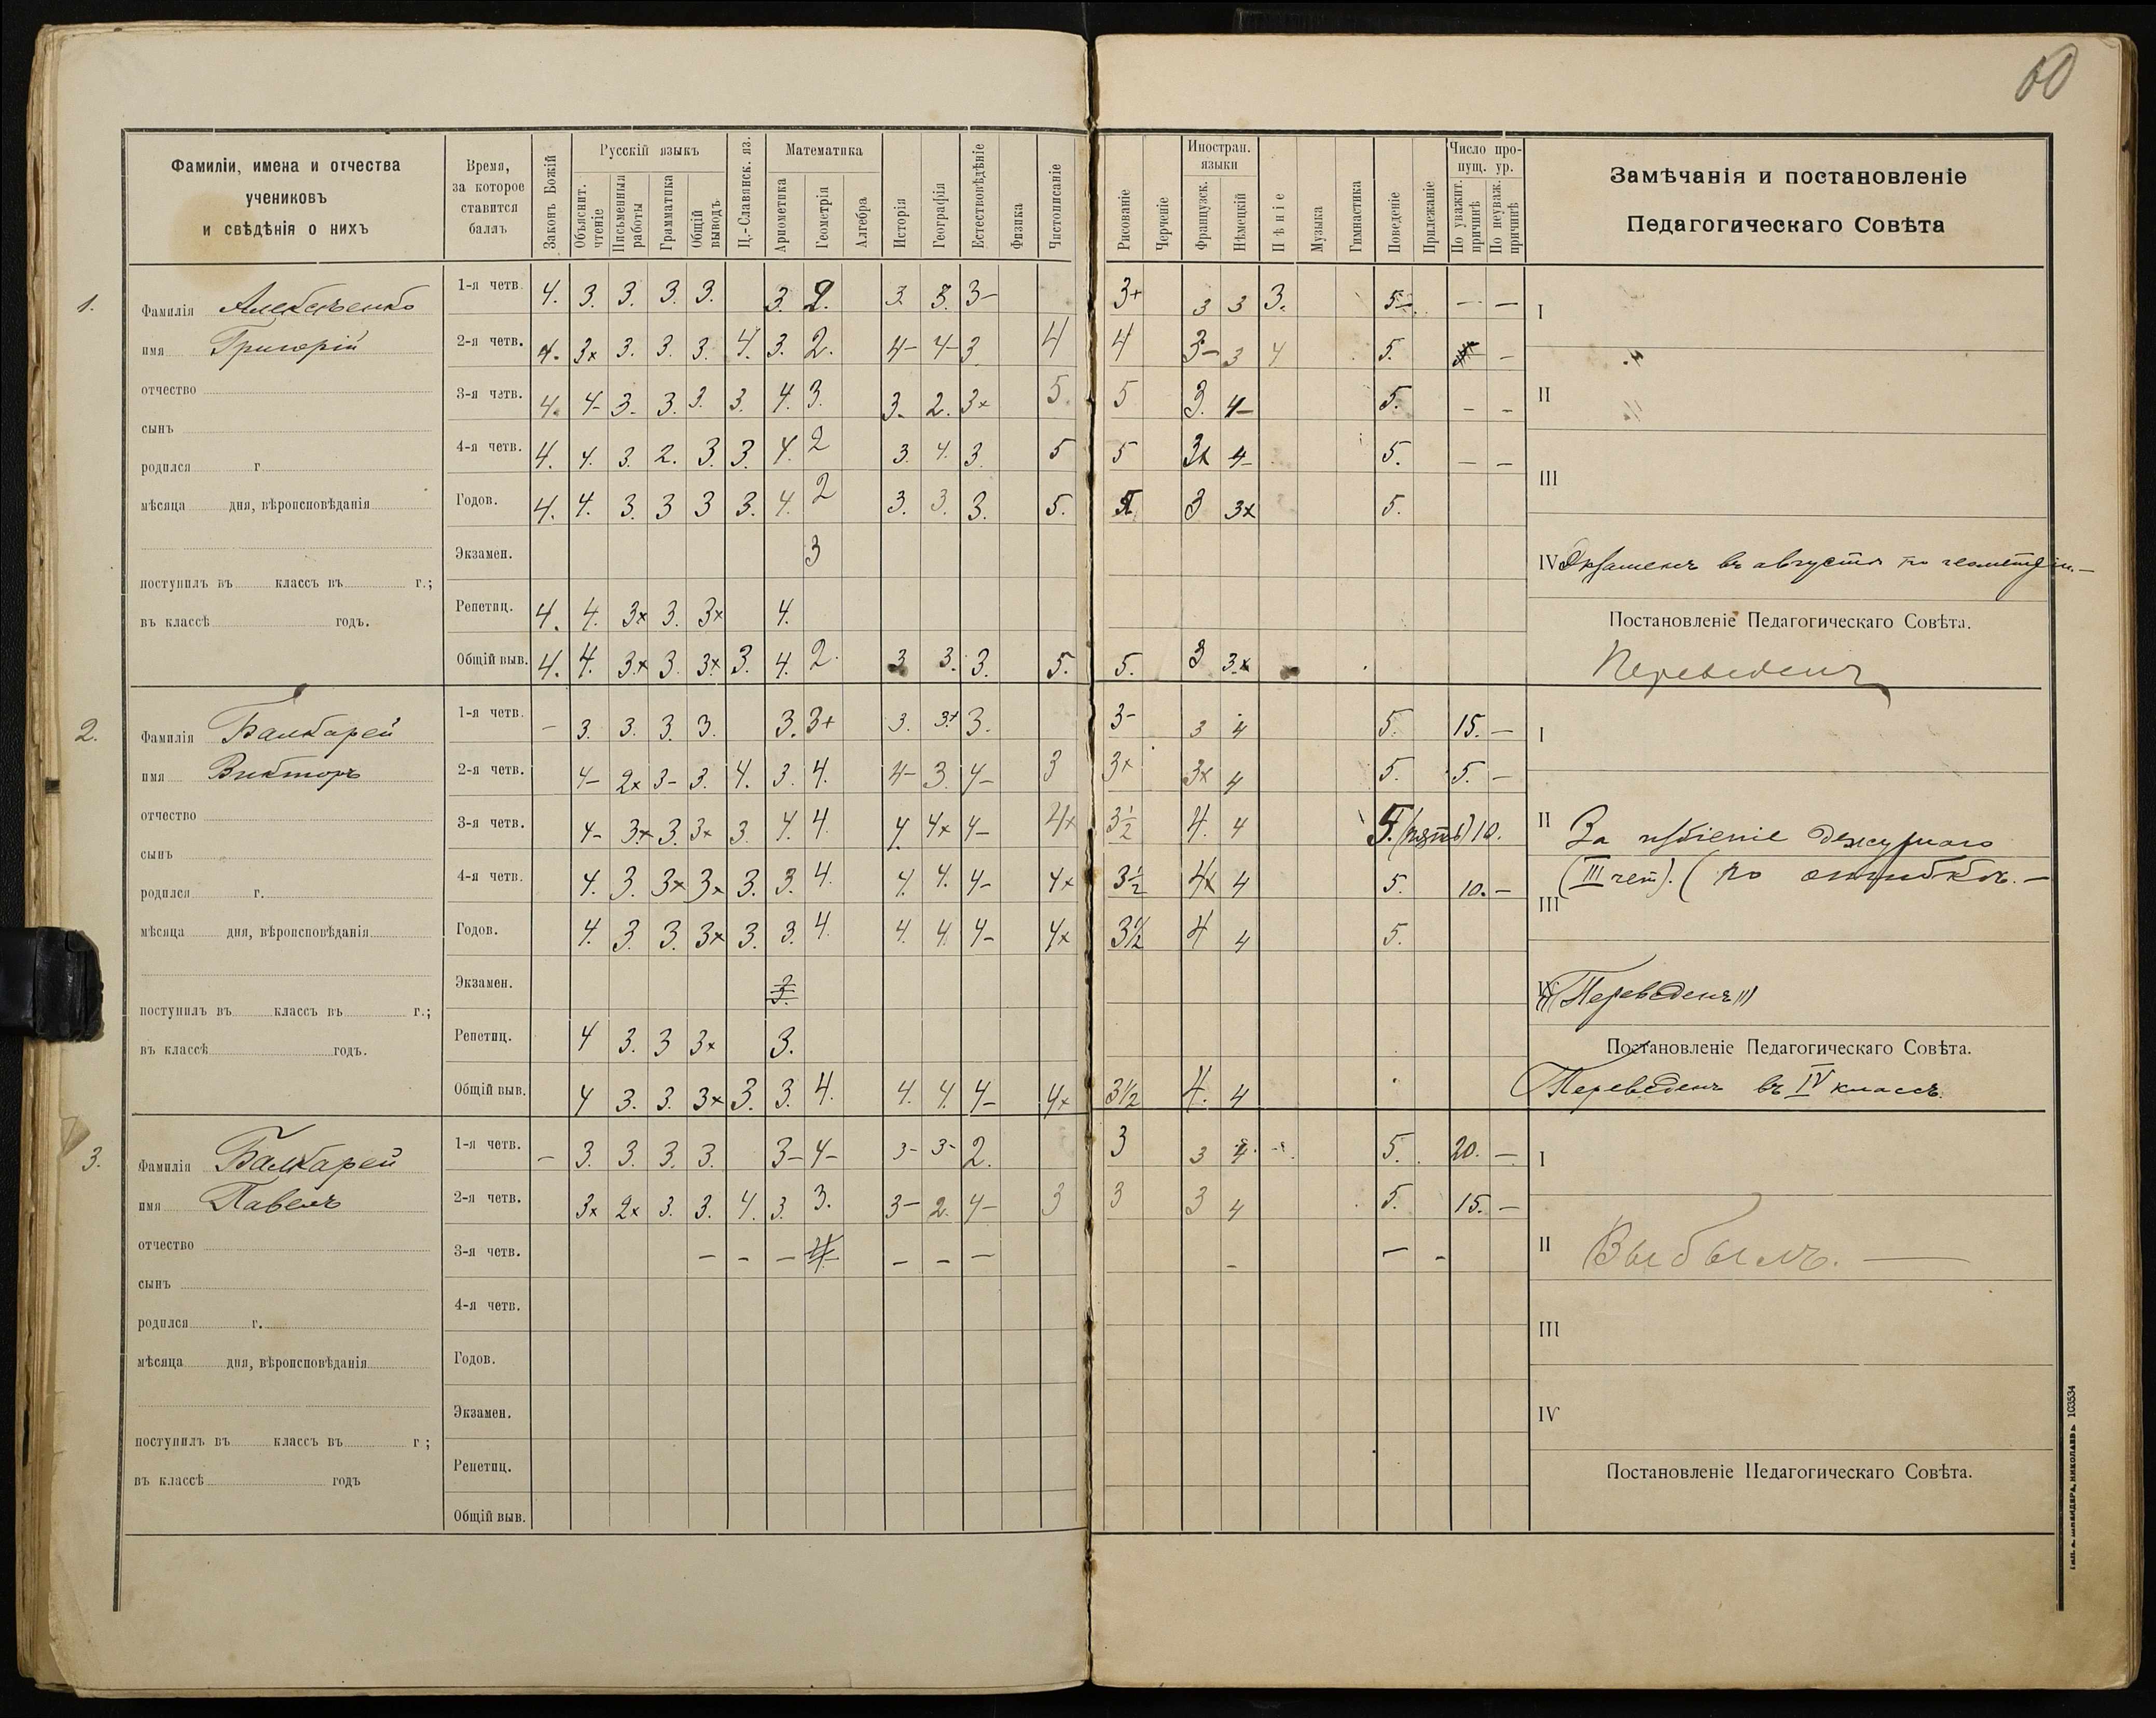 60
Фамиліи, имена и отчества
учениковъ
и свѣдѣнія о нихъ
Время,
за которое
ставится
баллъ
Законъ Божій
Русскій языкъ
Объяснит. чтеніе
Письменныя работы
Грамматика
Общій выводъ
Ц.-Славянск. яз.
Математика
Ариѳметика
Геометрія
Алгебра
Исторія
Географія
Естествовѣдѣніе
Физика
Чистописаніе
Рисованіе
Черченіе
Иностран. языки
Французск.
Нѣмецкій
Пѣніе
Музыка
Гимнастика
Поведеніе
Прилежаніе
Число пропущ. ур.
По уважит. причинѣ
По неуваж. причинѣ
Замѣчанія и постановленіе
Педагогическаго Совѣта
1.
Фамилія Алексѣенко
имя Григорій
отчество
сынъ
родился г.
мѣсяца дня, вѣроисповѣданія
поступилъ въ классъ въ г.;
въ классѣ годъ.
1-я четв. 4. 3. 3. 3. 3. 3. 2. 3. 3. 3– 3+ 3 3 3. 5– – –
2-я четв. 4. 3× 3. 3. 3. 4. 3. 2. 4– 4– 3 4 4 3– 3 4 5. –
3-я четв. 4. 4– 3. 3. 3. 3. 4. 3. 3. 2. 3× 5. 5 3. 4– 5. – –
4-я четв. 4. 4. 3. 2. 3. 3. 4. 2 3. 4. 3. 5 5 3× 4– 5. – –
Годов. 4. 4. 3. 3 3 3. 4. 2 3. 3. 3. 5. 3 3× 5.
Экзамен. 3
Репетиц. 4. 4. 3× 3. 3× 4.
Общій выв. 4. 4. 3× 3. 3× 3. 4. 2. 3 3. 3. 5. 5. 3 3×
I
II
III
IV Экзаменъ въ августѣ по геометріи.–
Постановленіе Педагогическаго Совѣта.
Переведенъ
2.
Фамилія Балкарей
имя Викторъ
отчество
сынъ
родился г.
мѣсяца дня, вѣроисповѣданія
поступилъ въ классъ въ г.;
въ классѣ годъ.
1-я четв. – 3. 3. 3. 3. 3. 3+ 3. 3+ 3. 3– 3 4 5. 15. –
2-я четв. 4– 2× 3– 3. 4. 3. 4. 4– 3. 4– 3 3× 3× 4 5. 5. –
3-я четв. 4– 3× 3. 3× 3. 4. 4. 4. 4× 4– 4× 3½ 4. 4 5. (пять) 10.
4-я четв. 4. 3. 3× 3× 3. 3. 4. 4. 4. 4– 4× 3½ 4× 4 5. 10. –
Годов. 4. 3. 3. 3× 3. 3. 4. 4. 4. 4– 4× 3½ 4 4 5.
Экзамен. 3.
Репетиц. 4 3. 3 3× 3.
Общій выв. 4 3. 3. 3× 3. 3. 4. 4. 4. 4– 4× 3½ 4. 4
I
II За избіеніе дежурнаго
(III чет). (по ошибкѣ. –
III
IV Переведенъ
Постановленіе Педагогическаго Совѣта.
Переведенъ въ IV классъ.
3.
Фамилія Балкарей
имя Павелъ
отчество
сынъ
родился г.
мѣсяца дня, вѣроисповѣданія
поступилъ въ классъ въ г;
въ классѣ годъ
1-я четв. – 3. 3. 3. 3. 3– 4– 3– 3– 2. 3 3 4. 5. 20. –
2-я четв. 3× 2× 3. 3. 4. 3. 3. 3– 2. 4– 3 3 3 4 5. 15. –
3-я четв. – – – – – – – – –
4-я четв.
Годов.
Экзамен.
Репетиц.
Общій выв.
I
II Выбылъ. –
III
IV
Постановленіе Педагогическаго Совѣта.
Тип. А. Шнейдера, Николаевъ 103534